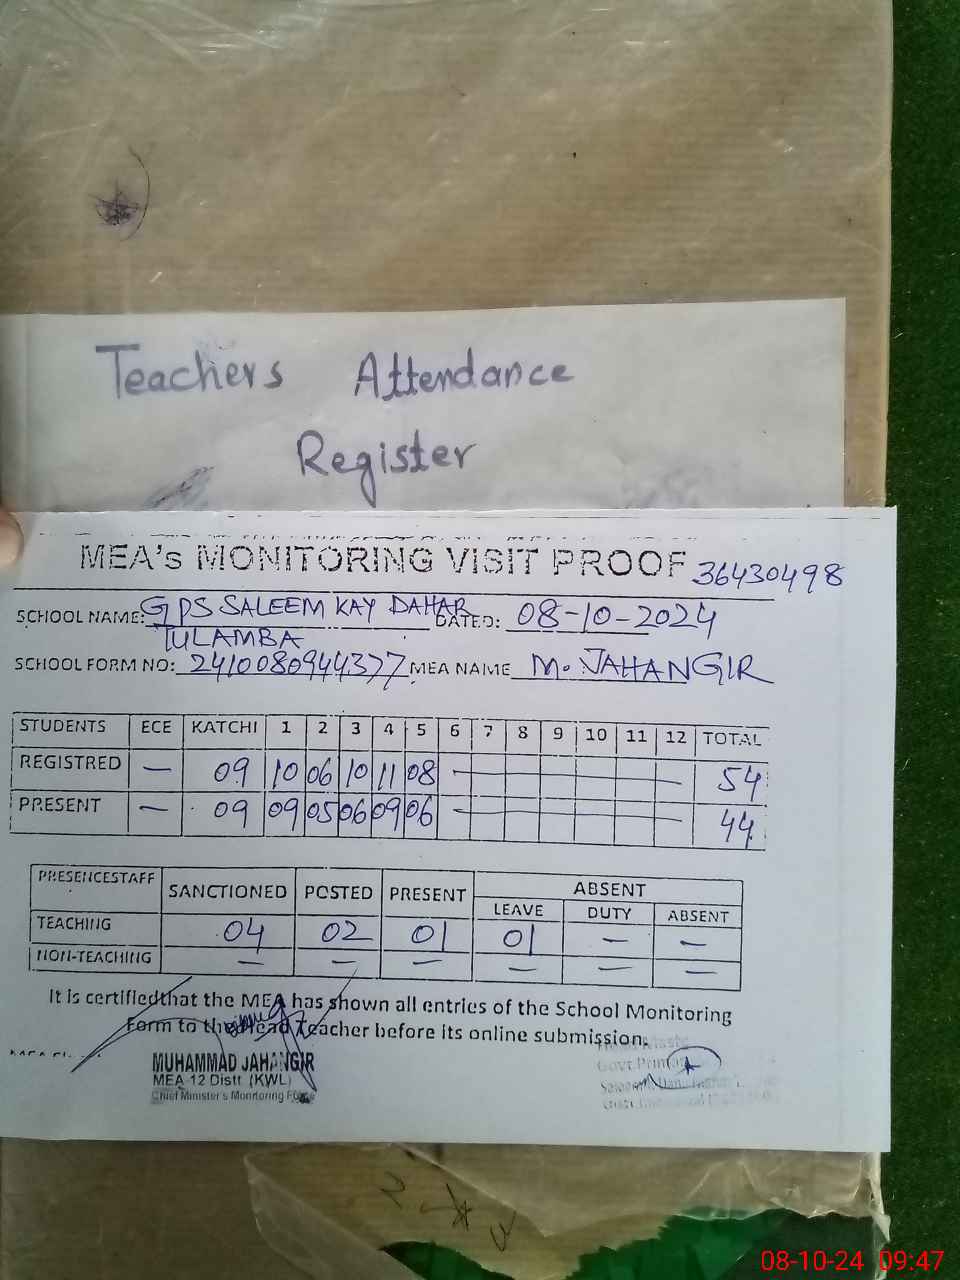 Teachers Attendance
Register
MEA's MONITORING VISIT PROOF 36430498
SCHOOL NAME: GPS SALEEM KAY DAHAR DATED: 08-10-2024
TULAMBA
SCHOOL FORM NO: 2410080944377 MEA NAME M. JAHANGIR
STUDENTS ECE KATCHI 1 2 3 4 5 6 7 8 9 10 11 12 TOTAL
REGISTRED — 09 10 06 10 11 08 — 54
PRESENT — 09 09 05 06 09 06 — 44
PRESENCESTAFF SANCTIONED POSTED PRESENT ABSENT
LEAVE DUTY ABSENT
TEACHING 04 02 01 01 — —
NON-TEACHING — — — — — —
It is certifiedthat the MEA has shown all entries of the School Monitoring
Form to the Head Teacher before its online submission.
MUHAMMAD JAHANGIR
MEA-12 Distt (KWL)
Chief Minister's Monitoring Force
Govt. Primary
08-10-24 09:47